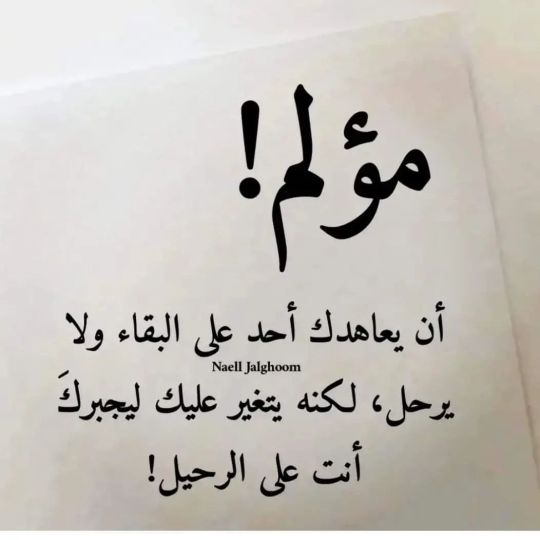 مؤلم!
أن يعاهدك أحد على البقاء ولا
Naell Jalghoom
يرحل، لكنه يتغير عليك ليجبركَ
أنت على الرحيل!